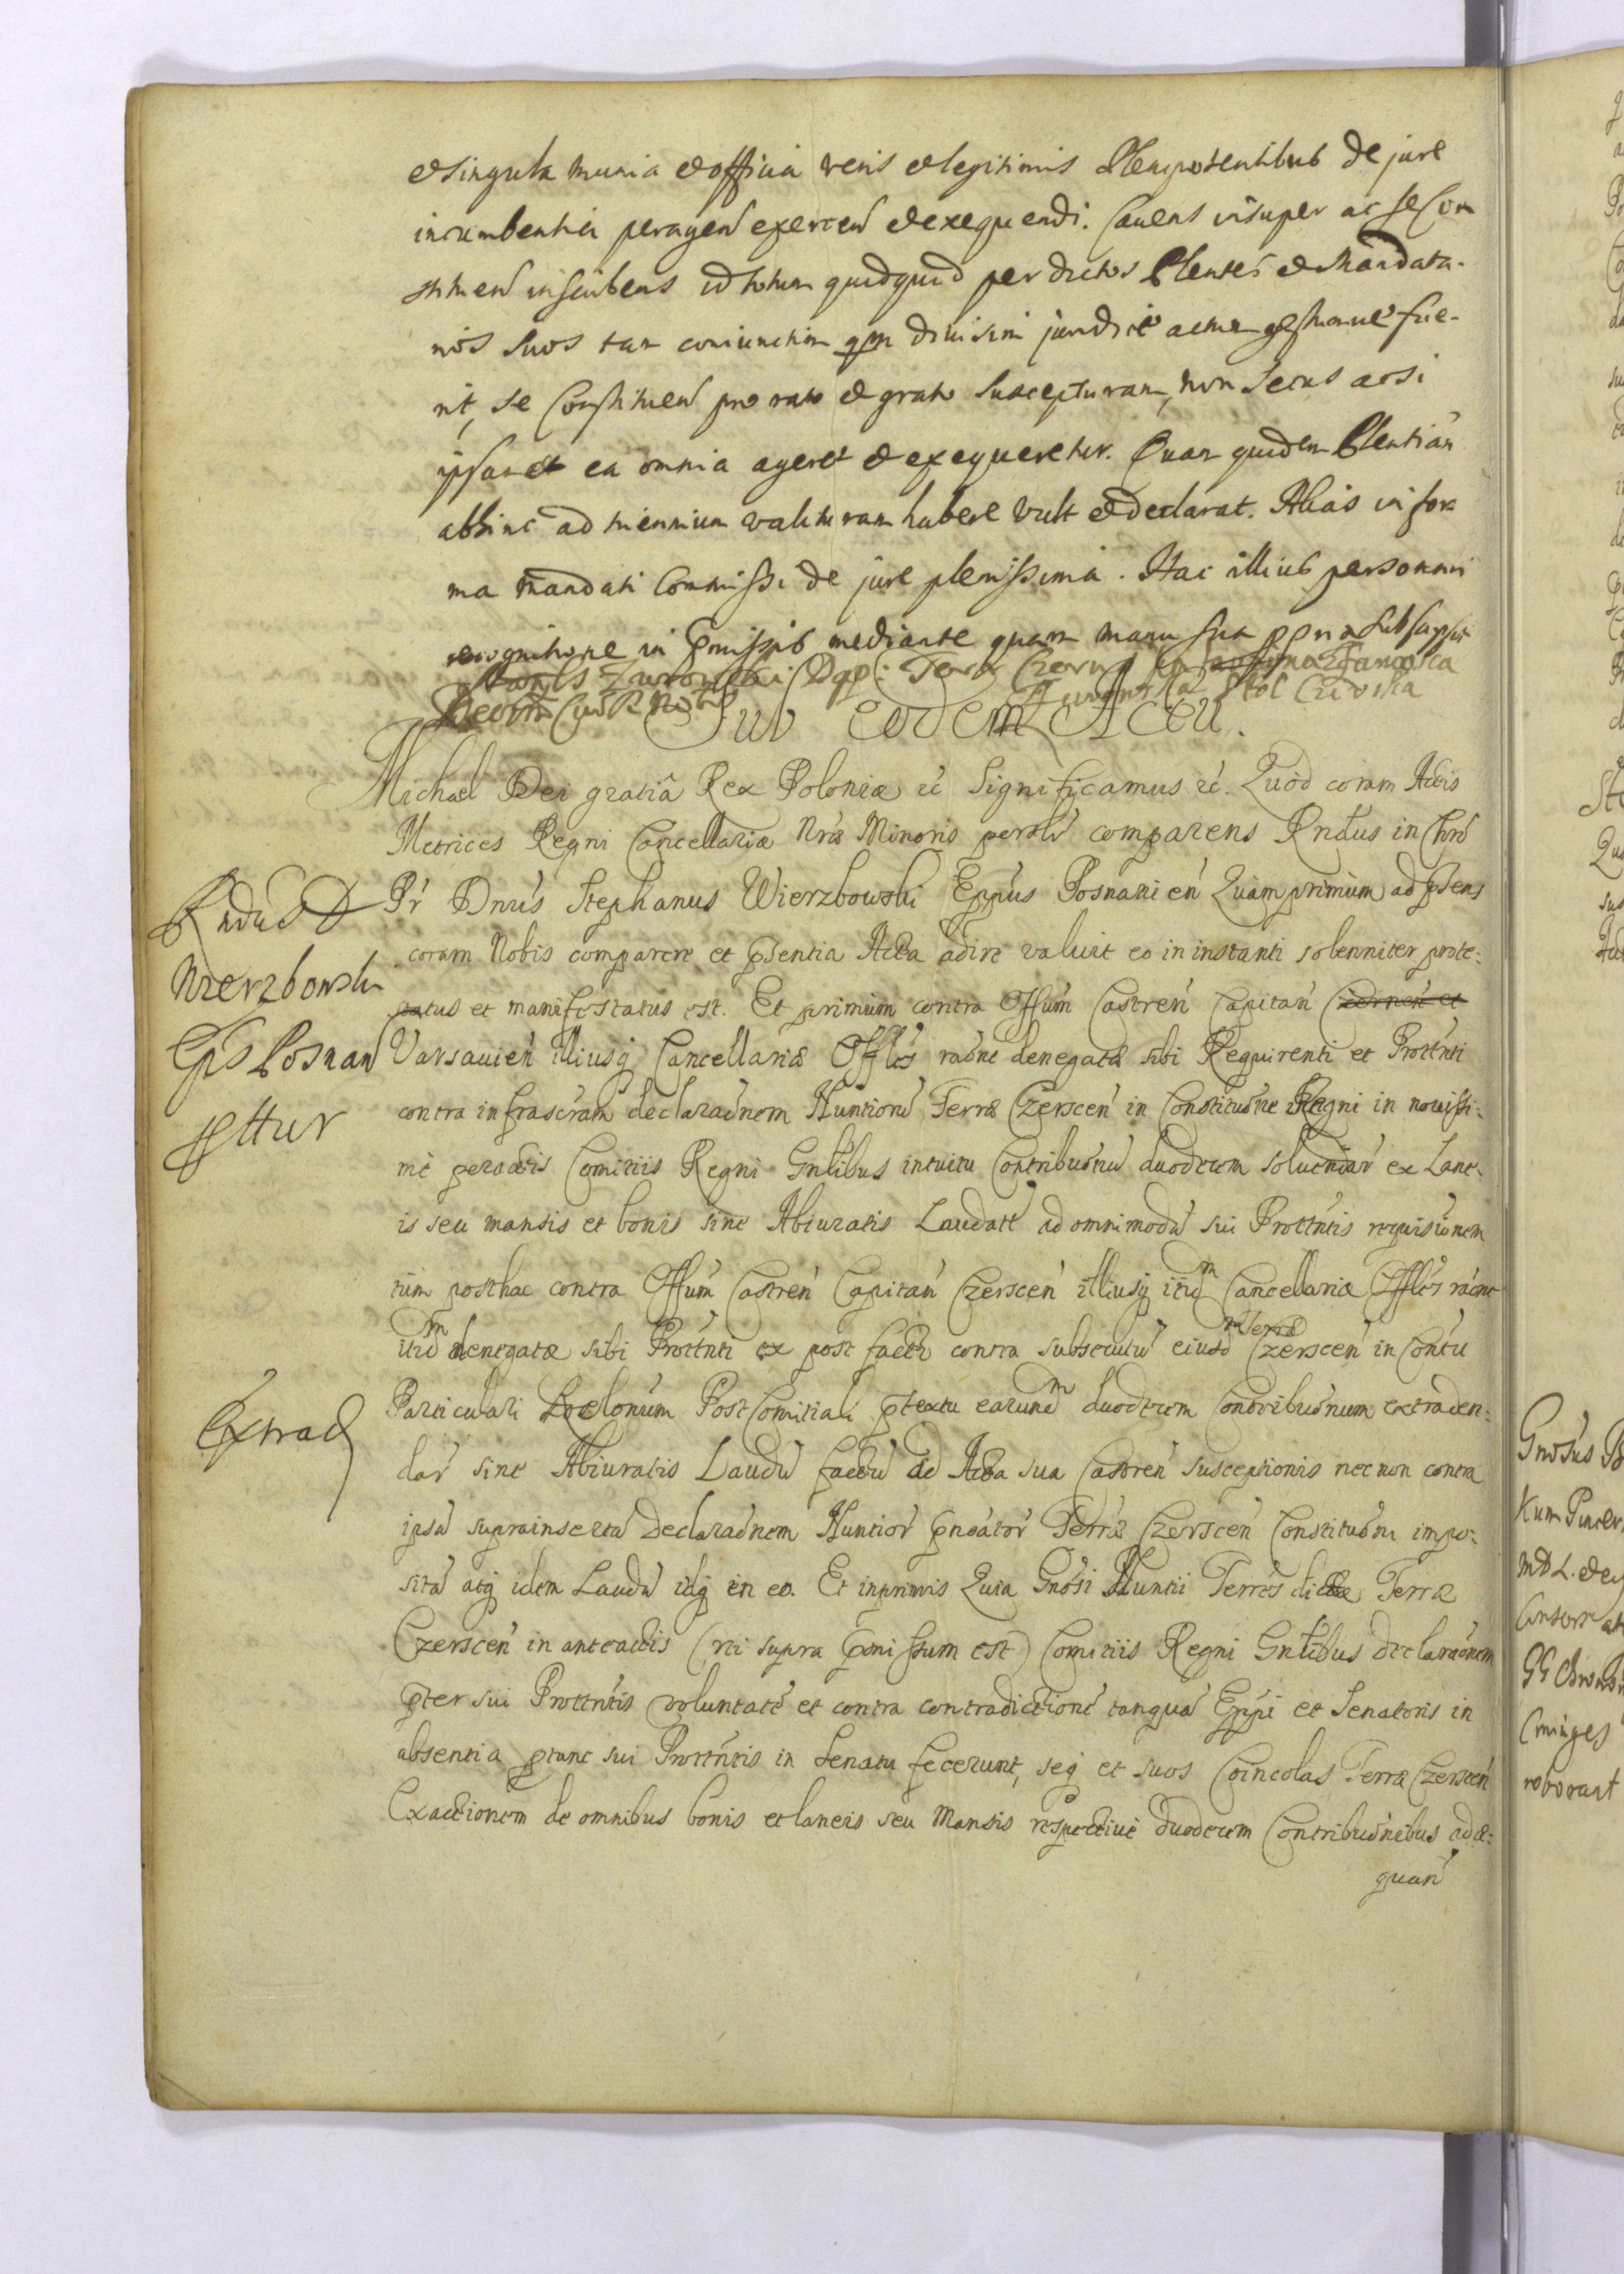 et singula munia et officia veris et legitimis Plenipotentibus de jure
incumbentia peragen exercen et exequendi. Cavens insuper ac se Con
stituen inscribens id totum quidquid per dictos Plentes et Mandata-
rios suos tam coniunctim qm divisim juridice actum gestumve fue-
rit, se Constituen pro rato et grato suscepturam, non secus acsi
ipsamet ea omnia ageret et exequeretur. Quam quidem Plentiam
abhinc ad triennium valituram habere vult et declarat. Alias in for
ma Mandati Commissi de jure plenissima. Hac illius personali
recognitione in pmissis mediante quam manu sua ppria subscripsit
Sub eodem Actu.
Michael Dei gratiâ Rex Poloniæ &c Significamus &c. Quòd coram Actis
Metrices Regni Cancellariæ Nræ Minoris persolr comparens Rndus in Chro
Pr Dnus Stephanus Wierzbowski Eppus Posnanien Quamprimum ad psens
coram Nobis comparere et psentia Acta adire valuit eo in instanti solenniter prote:
status et manifestatus est. Et primum contra Offum Castren Capitan Czernen et
Varsavien illiusq Cancellariæ Offles raone denegatæ sibi Requirenti et Prottnti
contra infrascram declaraonem Nuntioru Terræ Czerscen in Constituone Regni in novissi:
mè peractis Comitiis Regni Gnlibus intuitu Contribuonu duodecem solvendar ex Lane:
is seu mansis et bonis sine Abiuratis Laudatt ad omnimoda sui Prottntis requisionem
tùm posthac contra Offum Castren Capitan Czerscen illiusq itid m Cancellariæ Offles raone
itid m denegatæ sibi Prottnti ex post facto contra subsecutu eiusd m Terræ Czerscen in Contu
Particulari Loclonum Post Comitiali ptextu earund m duodecem Contribuonum extraden:
dar sine Abiuratis Laudu factu ad Acta sua Castren susceptionis nec non contra
ipsa suprainserta Declaraonem Nuntior pnoator Terræ Czerscen Constituoni impo:
sita atq idem Laudu idq in eo. Et inprimis Quia Gnosi Nuntii Terres dictæ Terræ
Czerscen in anteactis (uti supra pmissum est) Comitiis Regni Gnlibus declaraonem
pter sui Prottntis voluntatè et contra contradictionè tanqua Eppi et Senatoris in
absentia ptunc sui Prottntis in Senatu fecerunt, seq et suos Coincolas Terræ Czerscen
Exactionem de omnibus bonis et laneis seu Mansis respectivè duodecem Contribuonibus adæ:
quan
Rndus D
Wierzbowski
Eps Posnan
pttur
Extrad
Gnosus
Kum Pincer
roborant